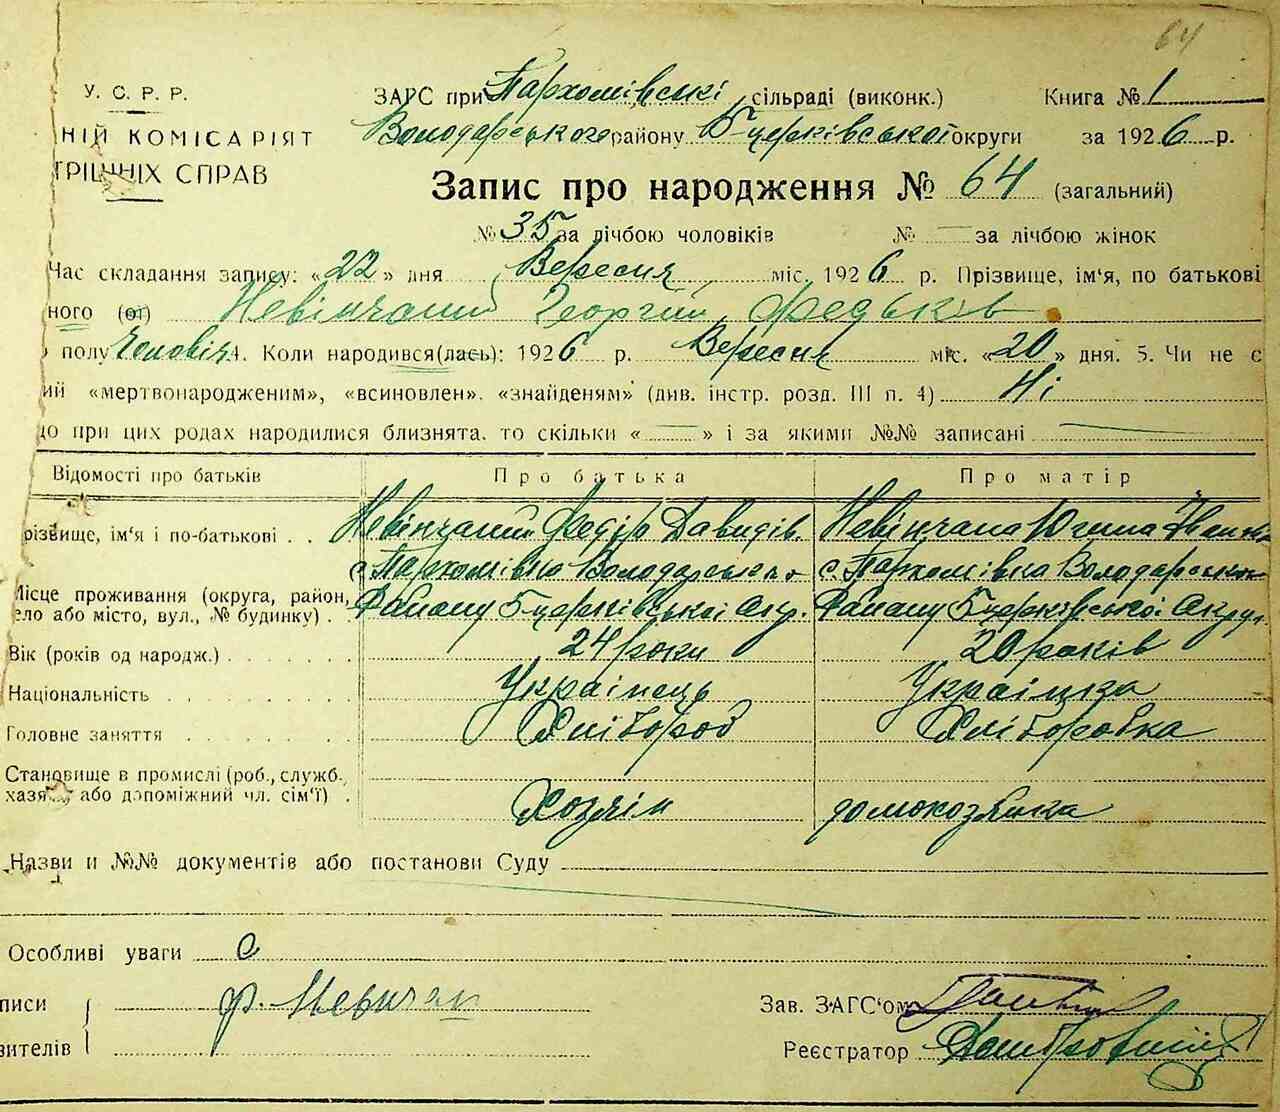 64
У. С. Р. Р.
ЗАГС при Пархомівські сільраді (виконк.) Книга № 1
НІЙ КОМІСАРІЯТ
Володарського району Б-церківської округи за 1926 р.
ТРІШНІХ СПРАВ
Запис про народження № 64 (загальний)
№ 35 за лічбою чоловіків № — за лічбою жінок
Час складання запису: «22» дня Вересня міс. 1926 р. Прізвище, ім'я, по батькові
ного (ої) Невінчаний Георгій Федьків
полу Чоловіч 4. Коли народився(лась): 1926 р. Вересня міс. «20» дня. 5. Чи не є
ий «мертвонародженим», «всиновлен», «знайденям» (див. інстр. розд. III п. 4) Ні
що при цих родах народилися близнята, то скільки « — » і за якими №№ записані —
Відомості про батьків Про батька Про матір
різвище, ім'я і по-батькові . . Невінчаний Федір Давидів. Невінчана Югина Іванів
с. Пархомівка Володарського с. Пархомівка Володарського
Місце проживання (округа, район, село або місто, вул., № будинку) . Району Б-церківської Окр. Району Б церківської Округи
Вік (років од народж.) . . . . . 24 роки 20 років
Національність . . . . . . Українець Українка
Головне заняття . . . . . . Хлібороб Хлоборобка
Становище в промислі (роб., служб.,
хазя або допоміжний чл. сім'ї) . Хозяін домохозяйка
Назви и №№ документів або постанови Суду
Особливі уваги
писи ф. Невичан Зав. ЗАГС'ом
вителів Реєстратор Домбровський